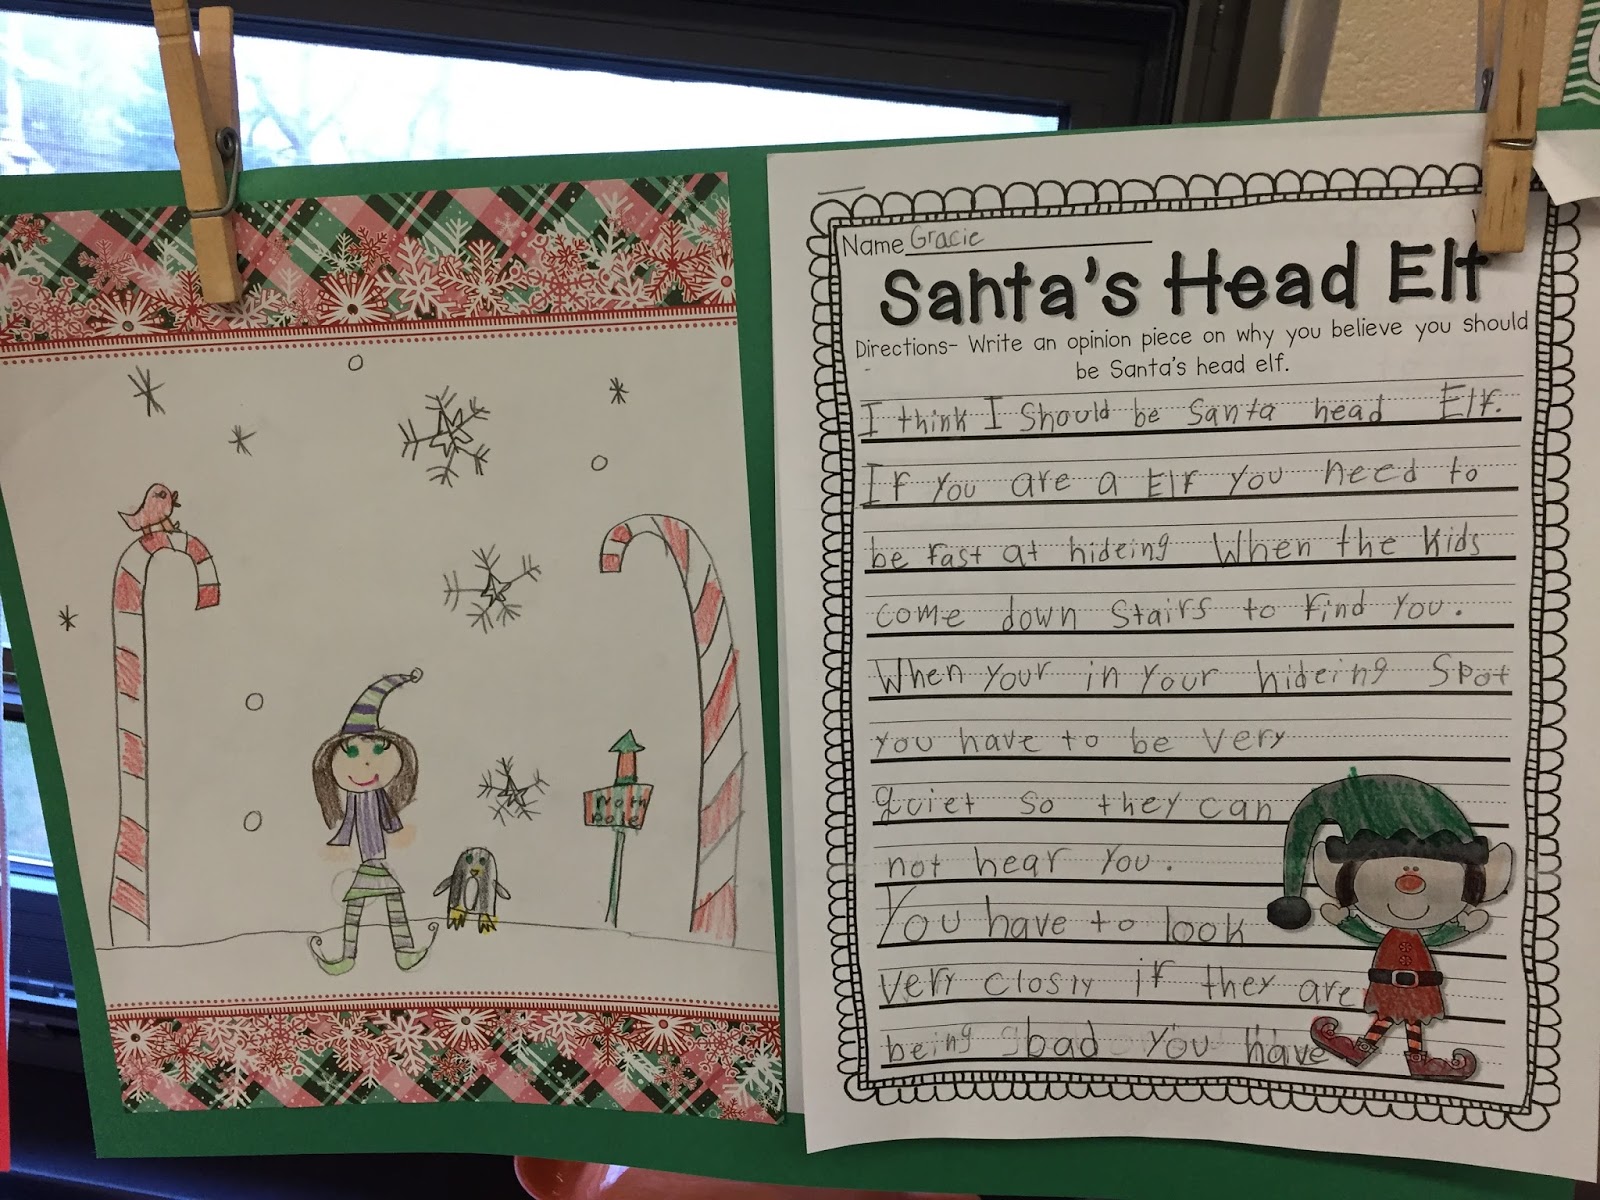 Name Gracie
Santa's Head Elf
Directions- Write an opinion piece on why you believe you should
be Santa's head elf.
I think I Should be Santa head Elf.
If you are a Elf you need to
be fast at hideing When the Kids
come down Stairs to find you.
When your in your hideing Spot
you have to be very
quiet so they can
not hear you.
You have to look
very closly if they are
being bad you have
North
pole